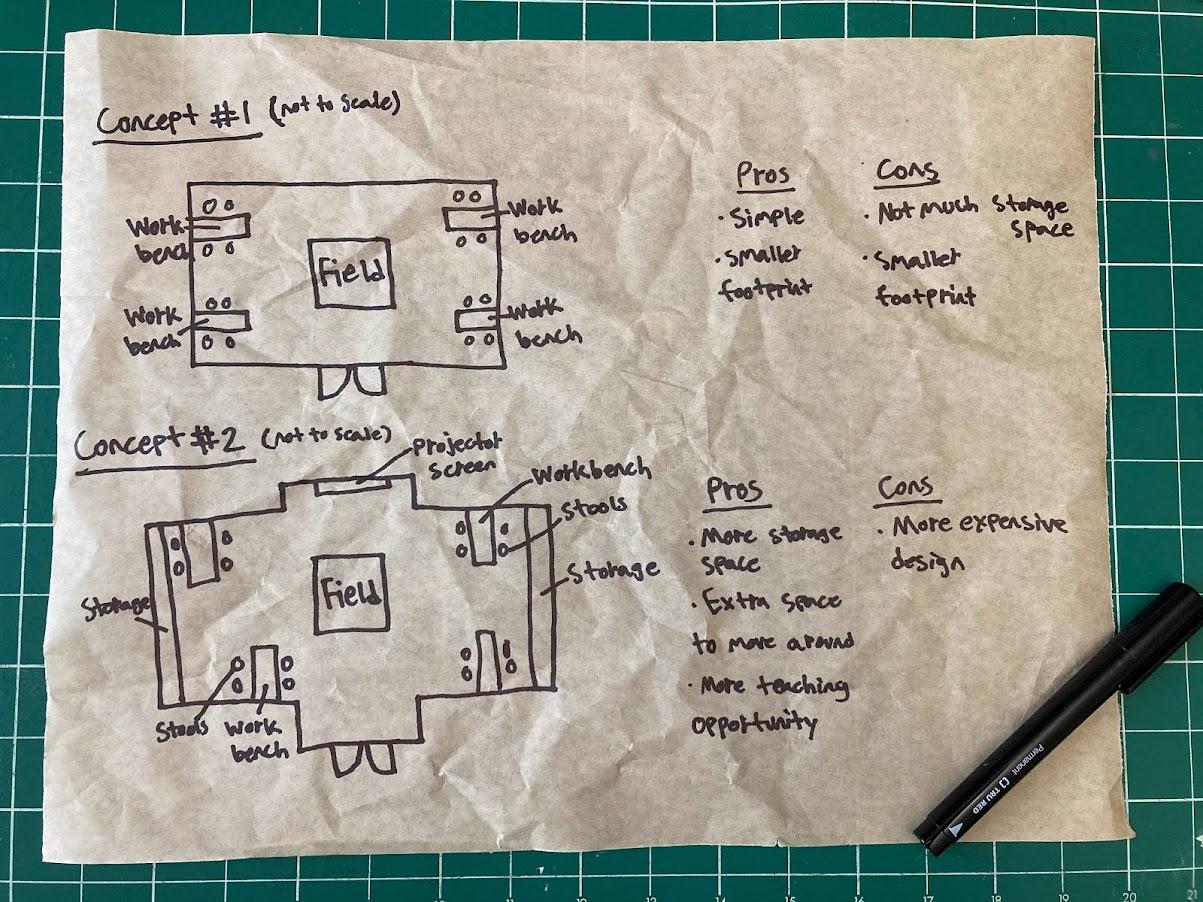 Concept #1 (not to scale)
Work
bench
Work
bench
Field
Work
bench
Work
bench
Pros
· Simple
· Smaller
footprint
Cons
· Not much storage
space
· Smaller
footprint
Concept #2 (not to scale)
Projector
Screen
Workbench
Stools
Storage
Field
Storage
Stools
Work
bench
Pros
· More storage
space
· Extra space
to move around
· More teaching
opportunity
Cons
· More expensive
design
Permanent TRU RED
12
13
14
15
16
17
18
19
20
21